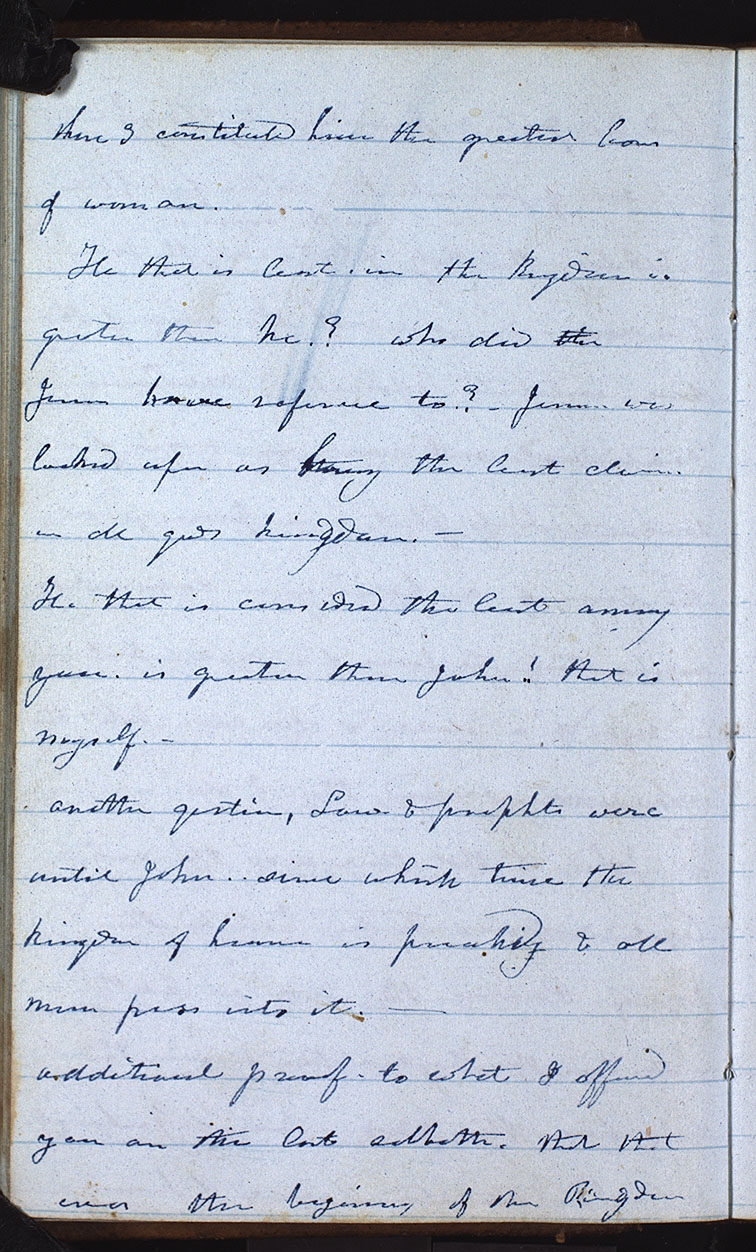 these 3 constituted him the greatest born
of woman.
He that is least in the Kingdom is
greater than he.? who did the
Jesus have refernce to? - Jesus was
looked upon as having the least claim
in the gods kingdom. —
He that is considerd the least among
you. is greater than John! that is
myself. —
another question, Law & prophets were
until John.. since which time the
kingdom of heaven is preachd & all
men press into it. —
additional proof. to what I offerd
you on the last sabbath. that that
was the beginning of the Kingdom